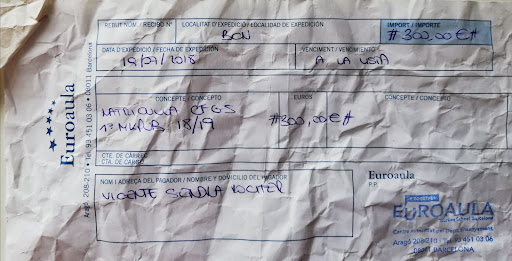 REBUT NÚM. / RECIBO Nº
LOCALITAT D'EXPEDICIÓ / LOCALIDAD DE EXPEDICIÓN
IMPORT / IMPORTE
BCN
#300,00 €#
DATA D'EXPEDICIÓ / FECHA DE EXPEDICIÓN
VENCIMENT / VENCIMIENTO
19/07/2018
A LA VISTA
CONCEPTE / CONCEPTO
EUROS
CONCEPTE / CONCEPTO
MATRICULA CFGS
18/19
#300,00 €#
CTE. DE CÀRREC
CTA. DE CARGO
NOM I ADREÇA DEL PAGADOR / NOMBRE Y DOMICILIO DEL PAGADOR
VICENTE
Euroaula
P.P.
EUROAULA
Aragó 208-210 Tel. 93 451 03 06
08011 BARCELONA
Euroaula
Aragó 208-210 • Tel. 93 451 03 06 • 08011 Barcelona